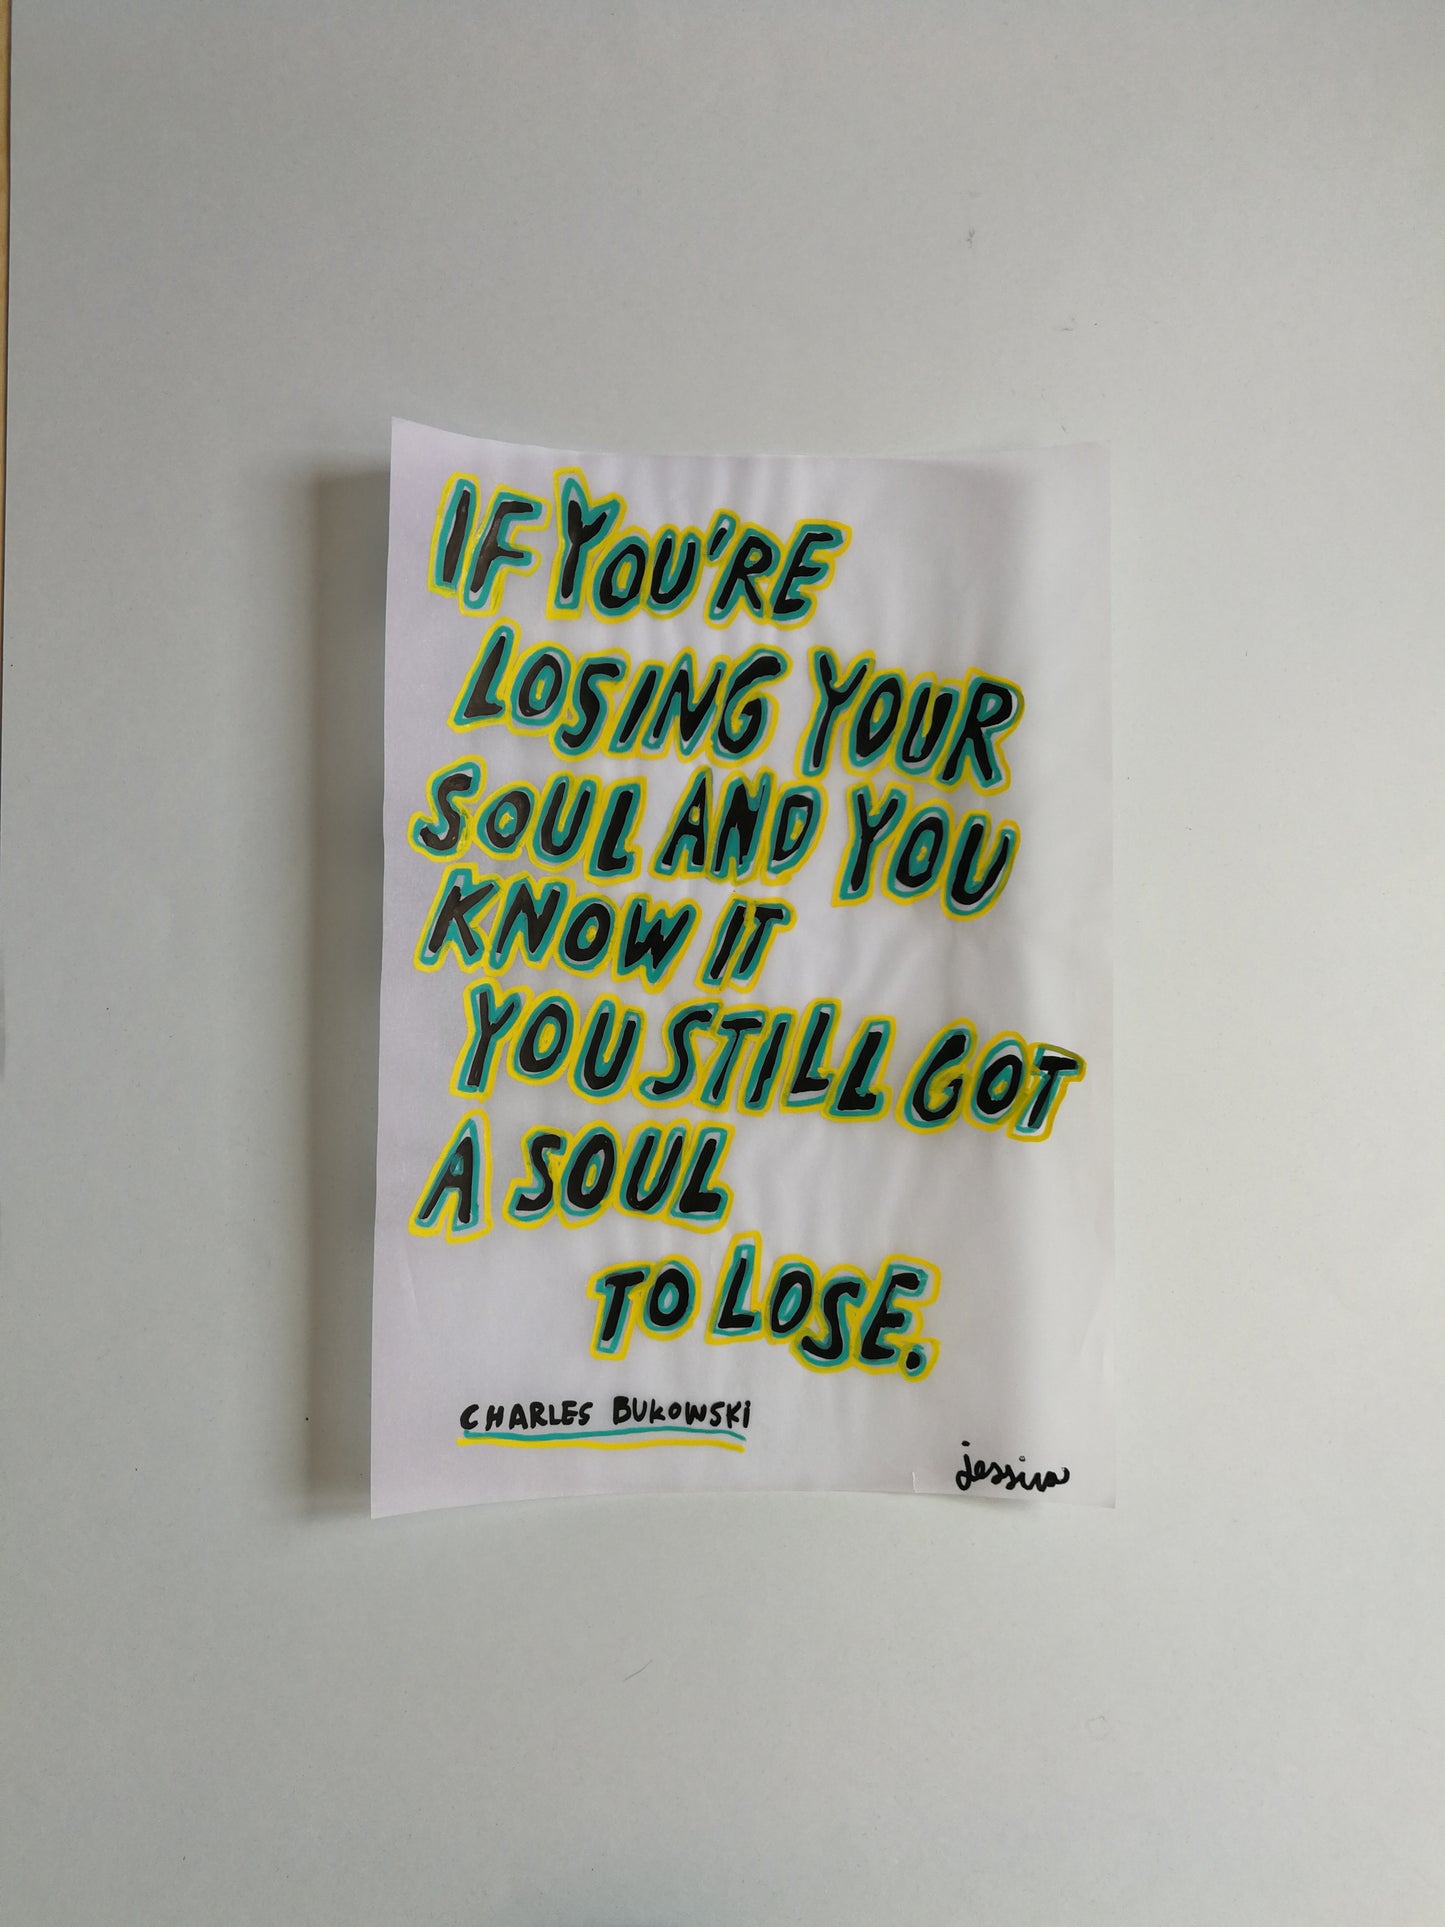 IF YOU'RE
LOSING YOUR
SOUL AND YOU
KNOW IT
YOU STILL GOT
A SOUL
TO LOSE.
CHARLES BUKOWSKi
jessica